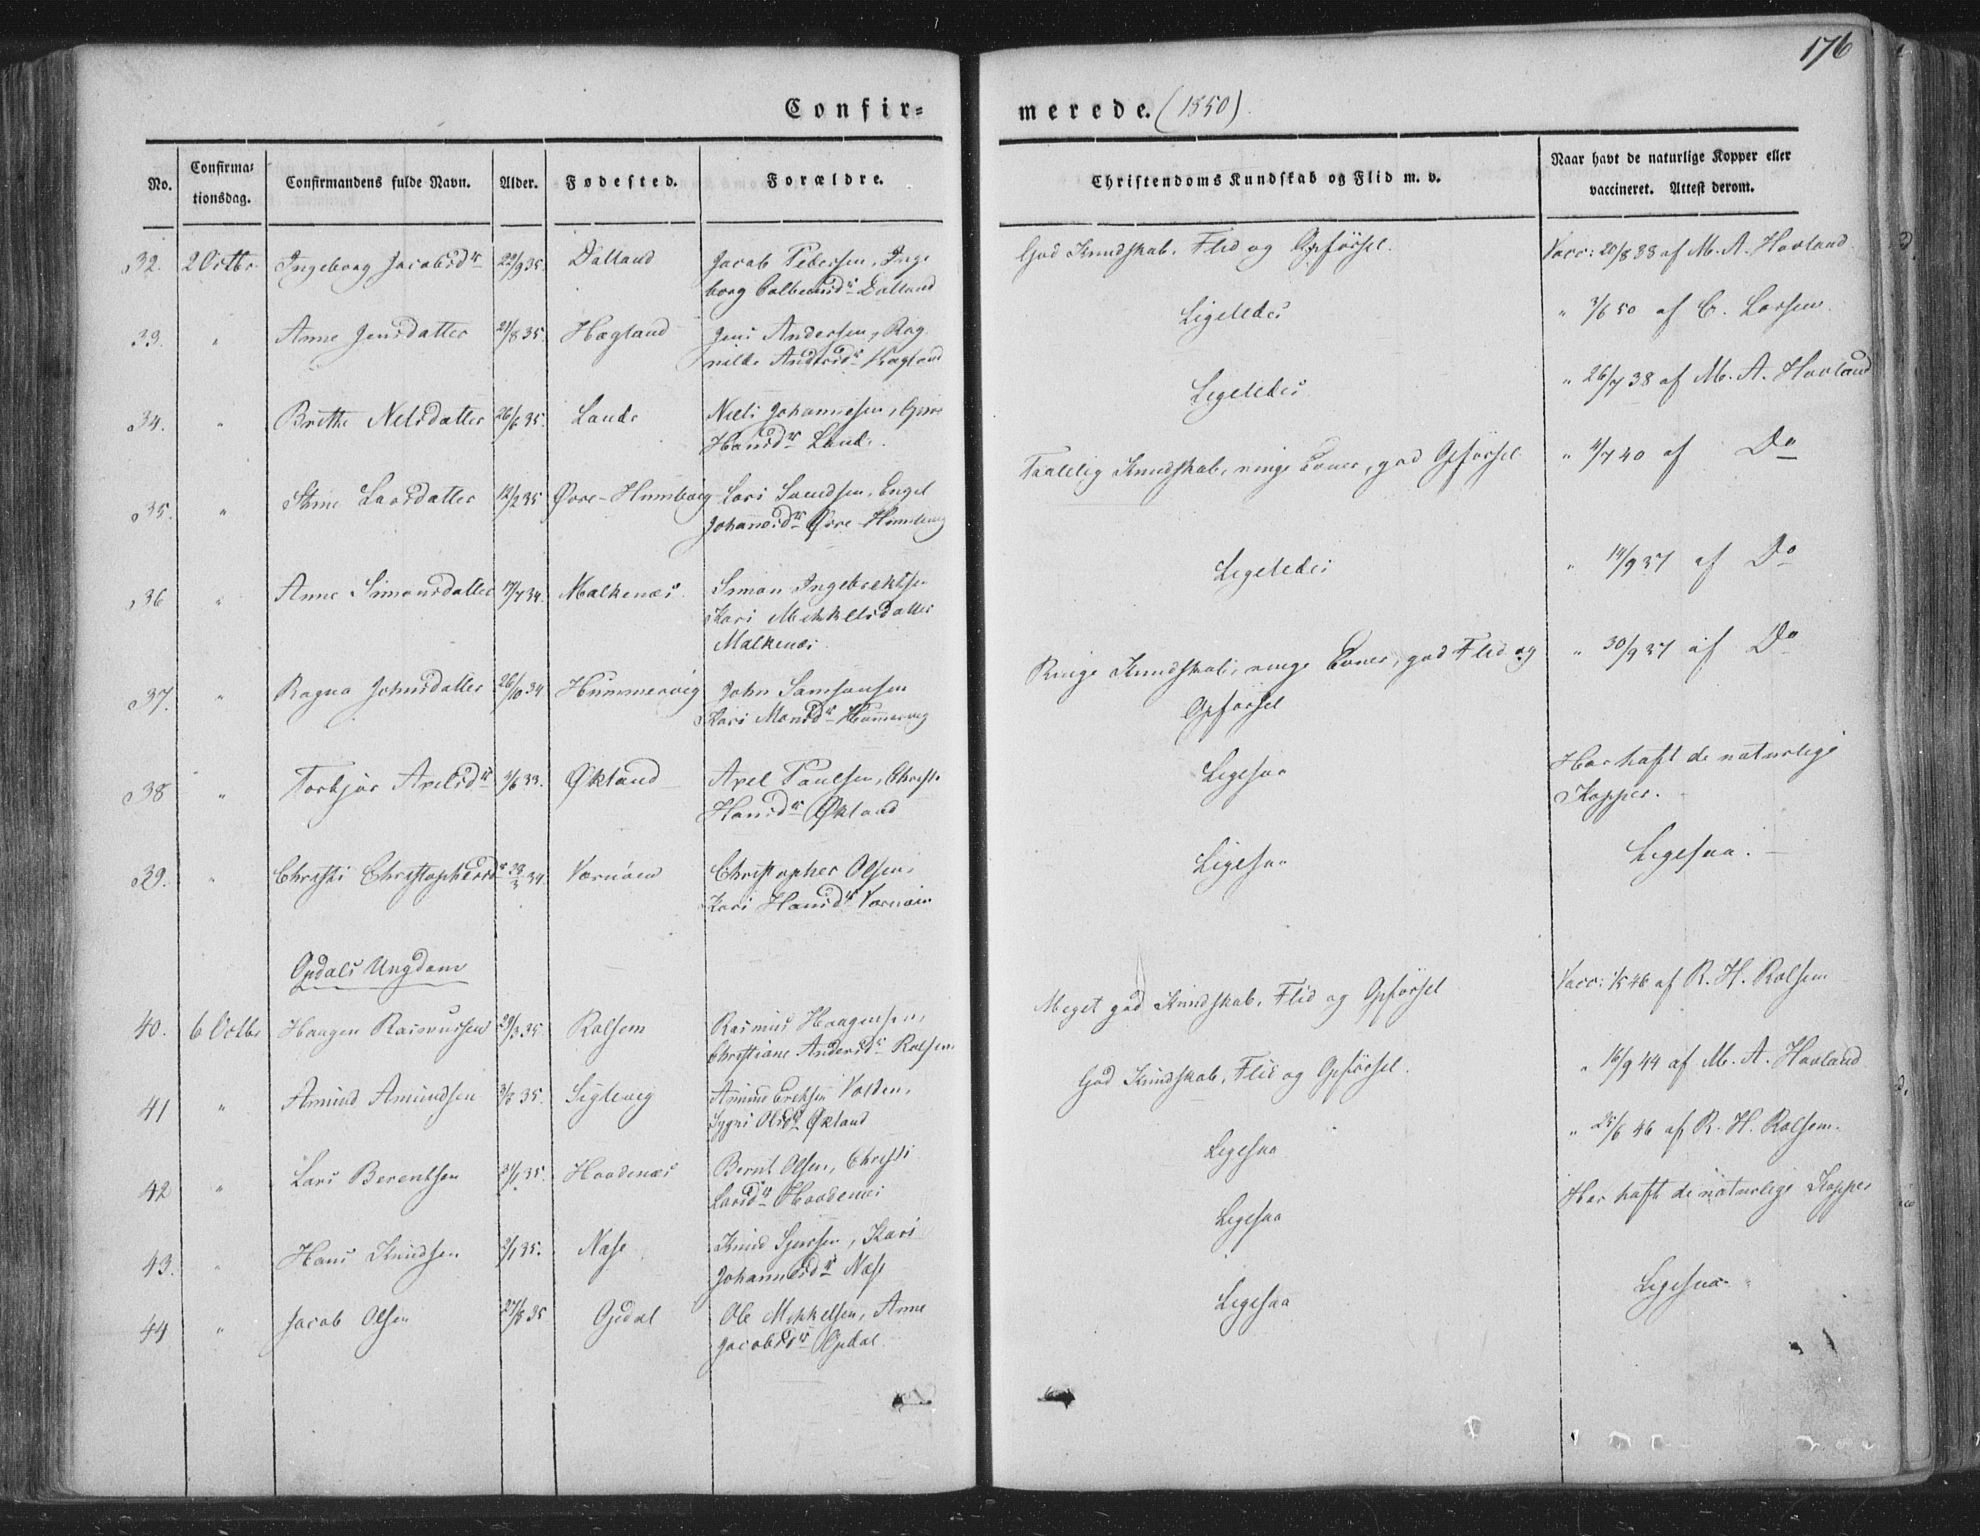 176
Confir=
merede. (1850).
No.
Confirma:
tionsdag.
Confirmandens fulde Navn.
Alder.
Fødested.
Forældre.
Christendoms Kundskab og Flid m. v.
Naar havt de naturlige Kopper eller
vaccineret. Attest derom.
32. 2 Octbr. Ingeborg Jacobsdr 22/9 35. Dalland Jacob Pedersen, Inge
borg Dalland
God Kundskab, Flid og Opførsel. Vacc: 38 af M. A. Hovland.
33. " Anne Jensdatter 21/8 35. Hægland Jens Andersen, Rag
nilde Andersdr Hægland
Ligeledes " 3/6 50 af C. Larsen.
34. " Brithe Nelsdatter 26/6 35. Lande Niels Johannesen,
Hansdr Lande.
Ligeledes " 26/7 38 af M. A. Hovland
35. " Larsdatter 12/2 35 Øvre-Humbvig Lars Svendsen, Engel
Johanesdr Øvre
Taalelig Kundskab, ringe Evner, god Opførsel " 40 af Do
36 " Anne Simonsdatter 17/7 34. Malkenæs Simon Ingebrektsen
Kari Mikkelsdatter
Malkenæs.
Ligeledes " 14/9 37 af Do
37. " Ragna Johnsdatter 34 Hummervig John Samsonsen
Kari Monsdr Hummervig
Ringe Kundskab, ringe Evner, god Flid og
Opførsel
" 30/9 37 af Do
38 " Torbjør Axelsdr 33. Økland Axel Paulsen, Christi
Hansdr Økland
Ligesaa Har haft de naturlige
Kopper.
39. " Christi 34. Vernøen Christopher Olsen,
Kari Hansdr
Ligesaa Ligesaa. —
Opdals Ungdom
40. 6 Octbr Haagen Rasmussen 35. Rolsem Rasmus Haagensen,
Christiane Andersdr Rolsem
Meget god Kundskab, Flid og Opførsel Vacc: 46 af R. H. Rolsem
41 " Amund Amundsen 35. Siglevig Amund Eriksen
Sygni Olsdr Økland
God Kundskab, Flid og Opførsel. " 16/9 44 af M. A. Hovland
42 " Lars Berentsen 35. Haadenæs Bernt Olsen, Christi
Larsdr Haadenæs
Ligesaa " 46 af R. H. Rolsem.
43. " Hans Knudsen 35. Næse Knud Sjursen, Kari
Johannesdr Næse
Ligesaa Har haft de naturlige Kopper
44 " Jacob Olsen 35 Opdal Ole Mikkelsen, Anne
Jacobsdr Opdal.
Ligesaa Ligesaa